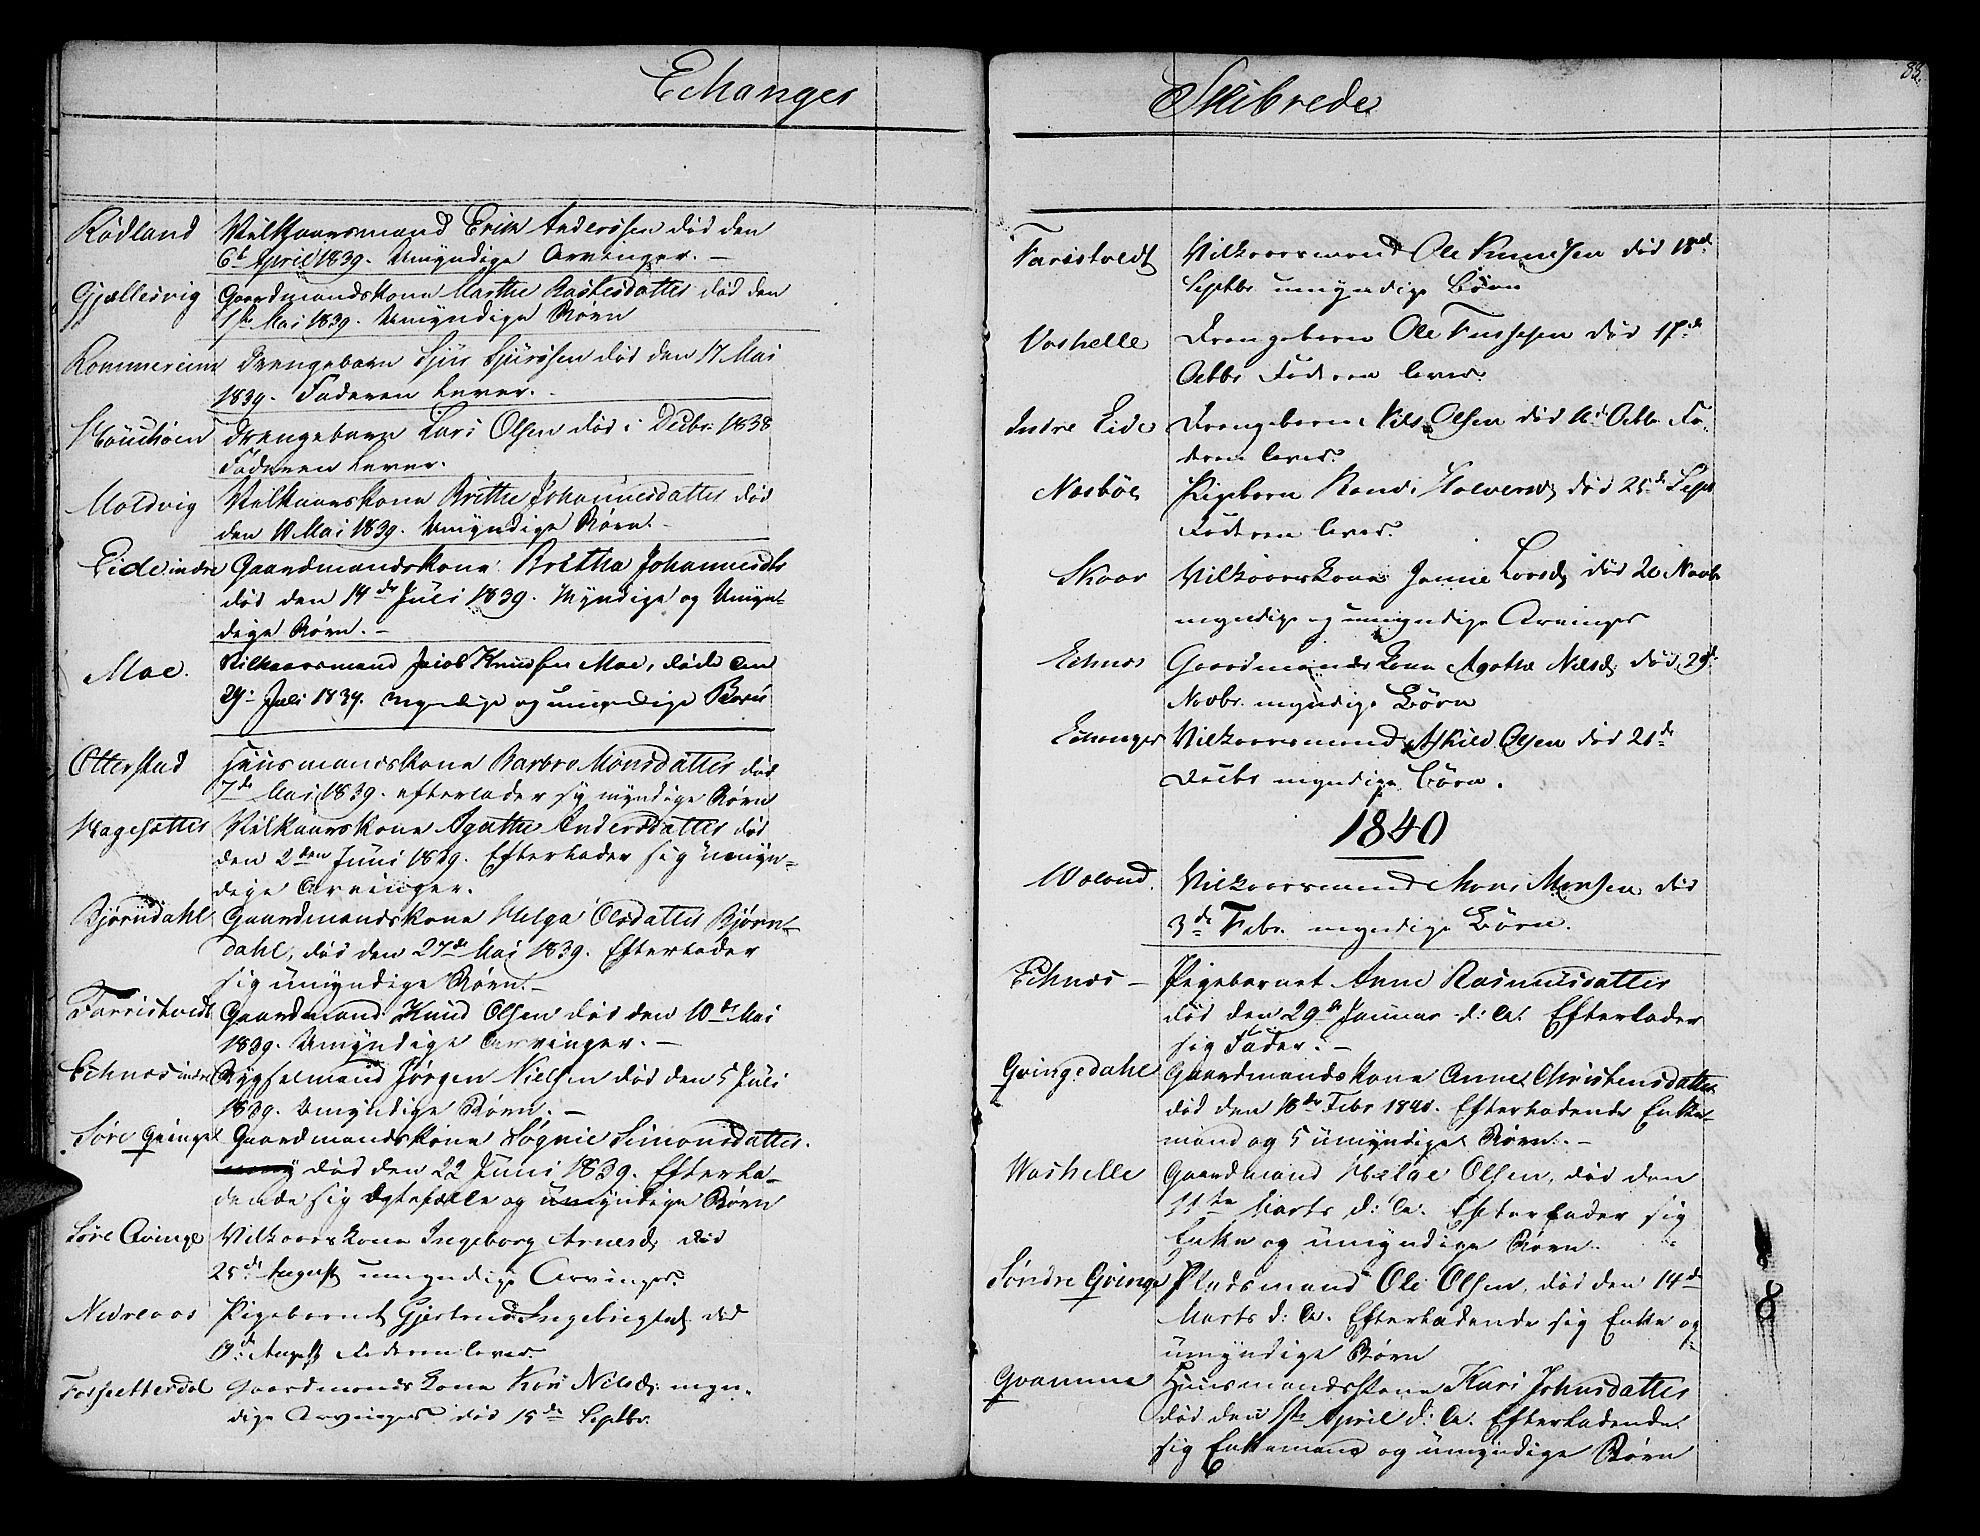 Echanger
Rödland Vilkaarsmand Erik Andersen död den
6te April 1839. Umyndige Arvinger. –
Gjellesvig Gaardmandskone Marthe Rastesdatter död den
1ste Mai 1839. Umyndige Börn
Rommereim Drengebarn Sjur Sjursen död den 17 Mai
1839. Faderen Lever.
Drengebarn Lars Olsen död i Decbr. 1838
Faderen Lever.
Moldvig Vilkaarskone Brithe Johannesdatter död
den 10 Mai 1839. Umyndige Börn. –
Eide indre Gaardmandskone Britha Johannesdtr
död den 14de Juli 1839. Myndige og Umyn-
dige Börn. –
Moe. Vilkaarsmand Jacob Knudsen Moe, döde den
29. Juli 1839. myndige og umyndige Börn
Otterstad Huusmandskone Barbro Monsdatter död
7de Mai 1839. efterlader sig myndige Börn
Hagesetter Vilkaarskone Agathe Andersdatter död
den 2den Juni 1839. Efterlader sig umyn-
dige Arvinger.
Bjørndahl Gaardmandskone Helga Olsdatter Bjørn-
dahl, död den 27de Mai 1839. Efterlader
sig umyndige Börn. –
Farristvedt Gaardmand Knud Olsen död den 10de Mai
1839. Umyndige Arvinger. –
Echnes indre Bygselmand Jørgen Nielsen död den 5 Juli
1839. Umyndige Börn. –
Søre Qvinge Gaardmandskone Søgnie Simonsdatter.
död den 22 Juni 1839. Efterla-
dende sig Egtefælle og umyndige Børn
Söre Qvinge Vilkaarskone Ingeborg Arnesd. död
25de August umyndige Arvinger.
Nedreaas Pigebarnet Gjertrud Ingebrigtsd. död
19de August Faderen lever
Gaardmandskone Kari Nilsd. myn-
dige Arvinger död 15de Septbr.
Skibrede
83.
Faristvedt Vilkaarsmand Ole Knudsen död 18de
Septbr umyndige Börn
Vashelle Drengebarn Ole död 17de
Octbr Faderen lever.
Indre Eide Drengebarn Nils Olsen död Octbr Fa-
deren lever.
Næsböe Pigebarn Randi Halversd. död 25de Sept
Faderen lever.
Skaar Vilkaarskone Janne Larsd. död 20 Novbr
myndige og umyndige Arvinger
Echnes Gaardmandskone Agathe Nilsd. död 29de
Novbr. myndige Börn
Echanger Vilkaarsmand Askild Olsen död 21de
Decbr myndige Börn.
1840
Vilkaarsmand Mons Monsen död
3de Febr. myndige Börn.
Echnes – Pigebarnet Anne Rasmusdatter
död den 29de Januar d: A. Efterlader
sig Fader. –
Qvingedahl Gaardmandskone Anne Christensdatter
död den 18de Febr 1840. Efterladende Enke-
mand og 5 umyndige Børn. –
Washelle Gaardmand Helge Olsen, död den
11te Marts d: A. Efterlader sig
Enke og umyndige Børn.
Søndre Qvinge Pladsmand Ole Olsen, död den 14de
Marts d: A. Efterladende sig Enke og
umyndige Børn
Qvamme Huusmandskone Kari Johnsdatter
död den 1ste April d: A. Efterladende
sig Enkemand og umyndige Børn
8